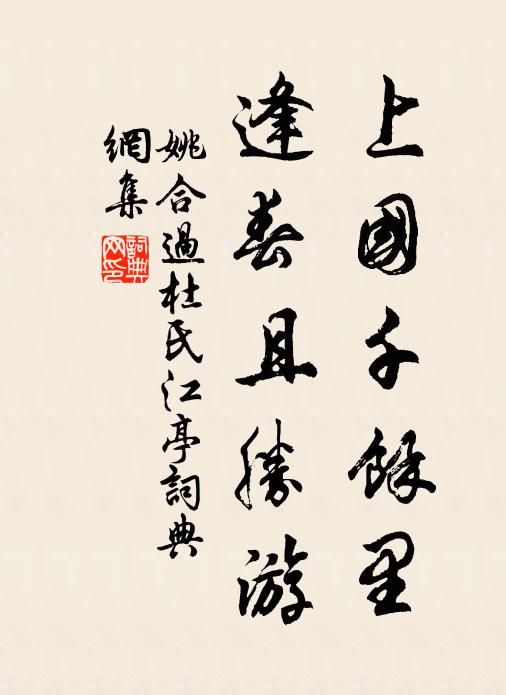 上國千餘里
逢春且勝游
姚合過杜氏江亭詞典
網集
詞典
网印